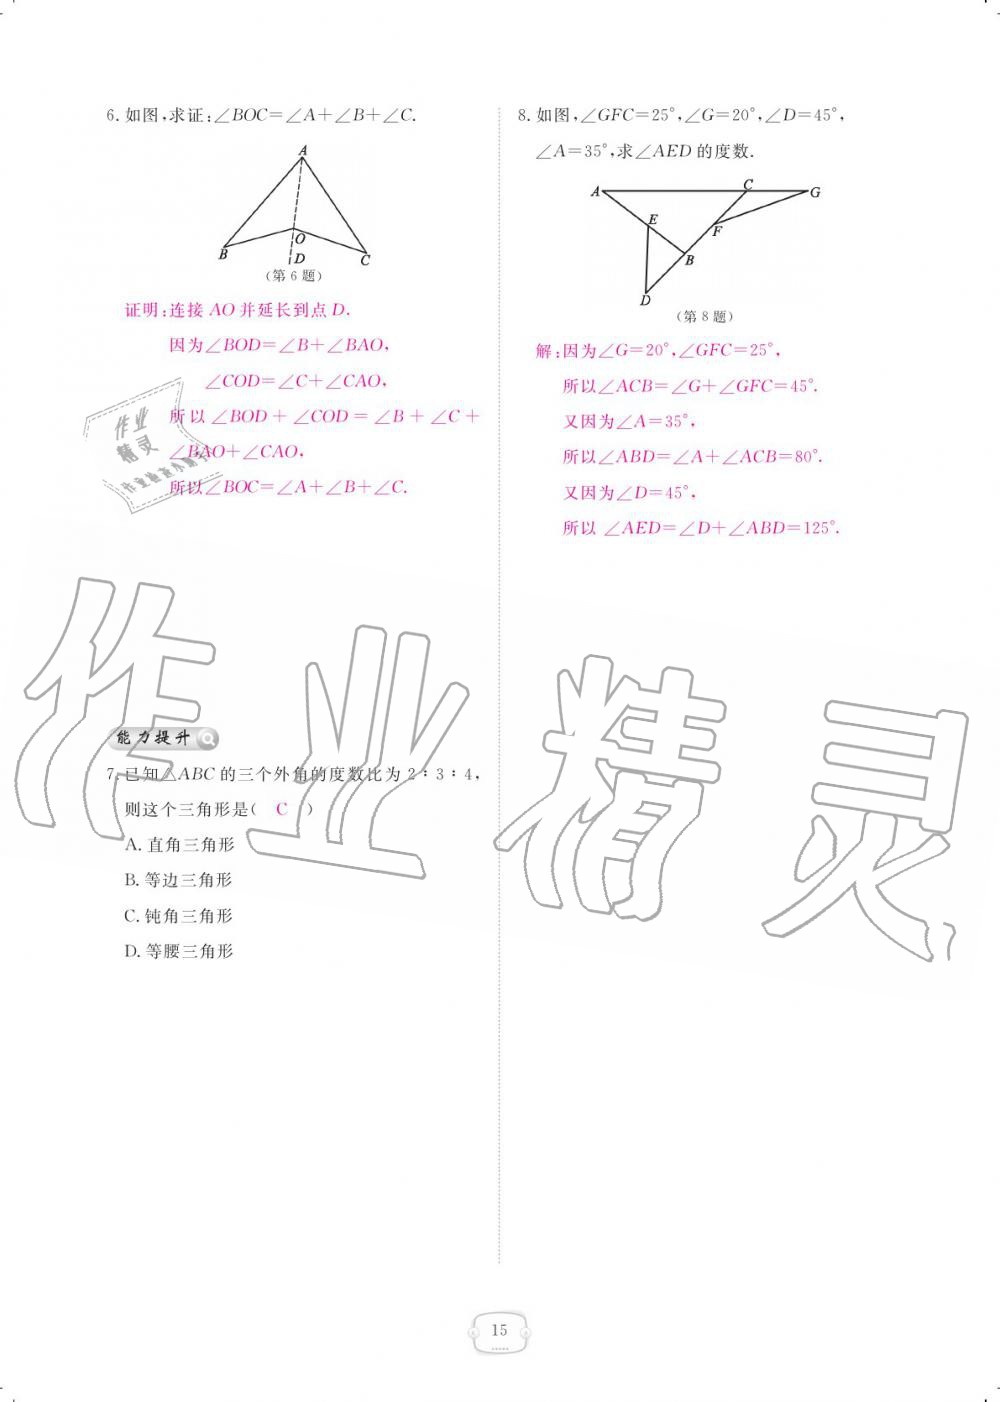 6. 如图,求证:∠BOC=∠A+∠B+∠C.
A
O
B
D
C
(第 6 题)
证明:连接 AO 并延长到点 D.
因为∠BOD=∠B+∠BAO,
∠COD=∠C+∠CAO,
所以 ∠BOD + ∠COD = ∠B + ∠C +
∠BAO+∠CAO,
所以∠BOC=∠A+∠B+∠C.
作业
精灵
能力提升
7. 已知△ABC 的三个外角的度数比为 2∶3∶4,
则这个三角形是( C )
A. 直角三角形
B. 等边三角形
C. 钝角三角形
D. 等腰三角形
8. 如图,∠GFC=25°,∠G=20°,∠D=45°,
∠A=35°,求∠AED 的度数.
C
A
G
E
F
B
D
(第 8 题)
解:因为∠G=20°,∠GFC=25°,
所以∠ACB=∠G+∠GFC=45°.
又因为∠A=35°,
所以∠ABD=∠A+∠ACB=80°.
又因为∠D=45°,
所以 ∠AED=∠D+∠ABD=125°.
作业精灵
15